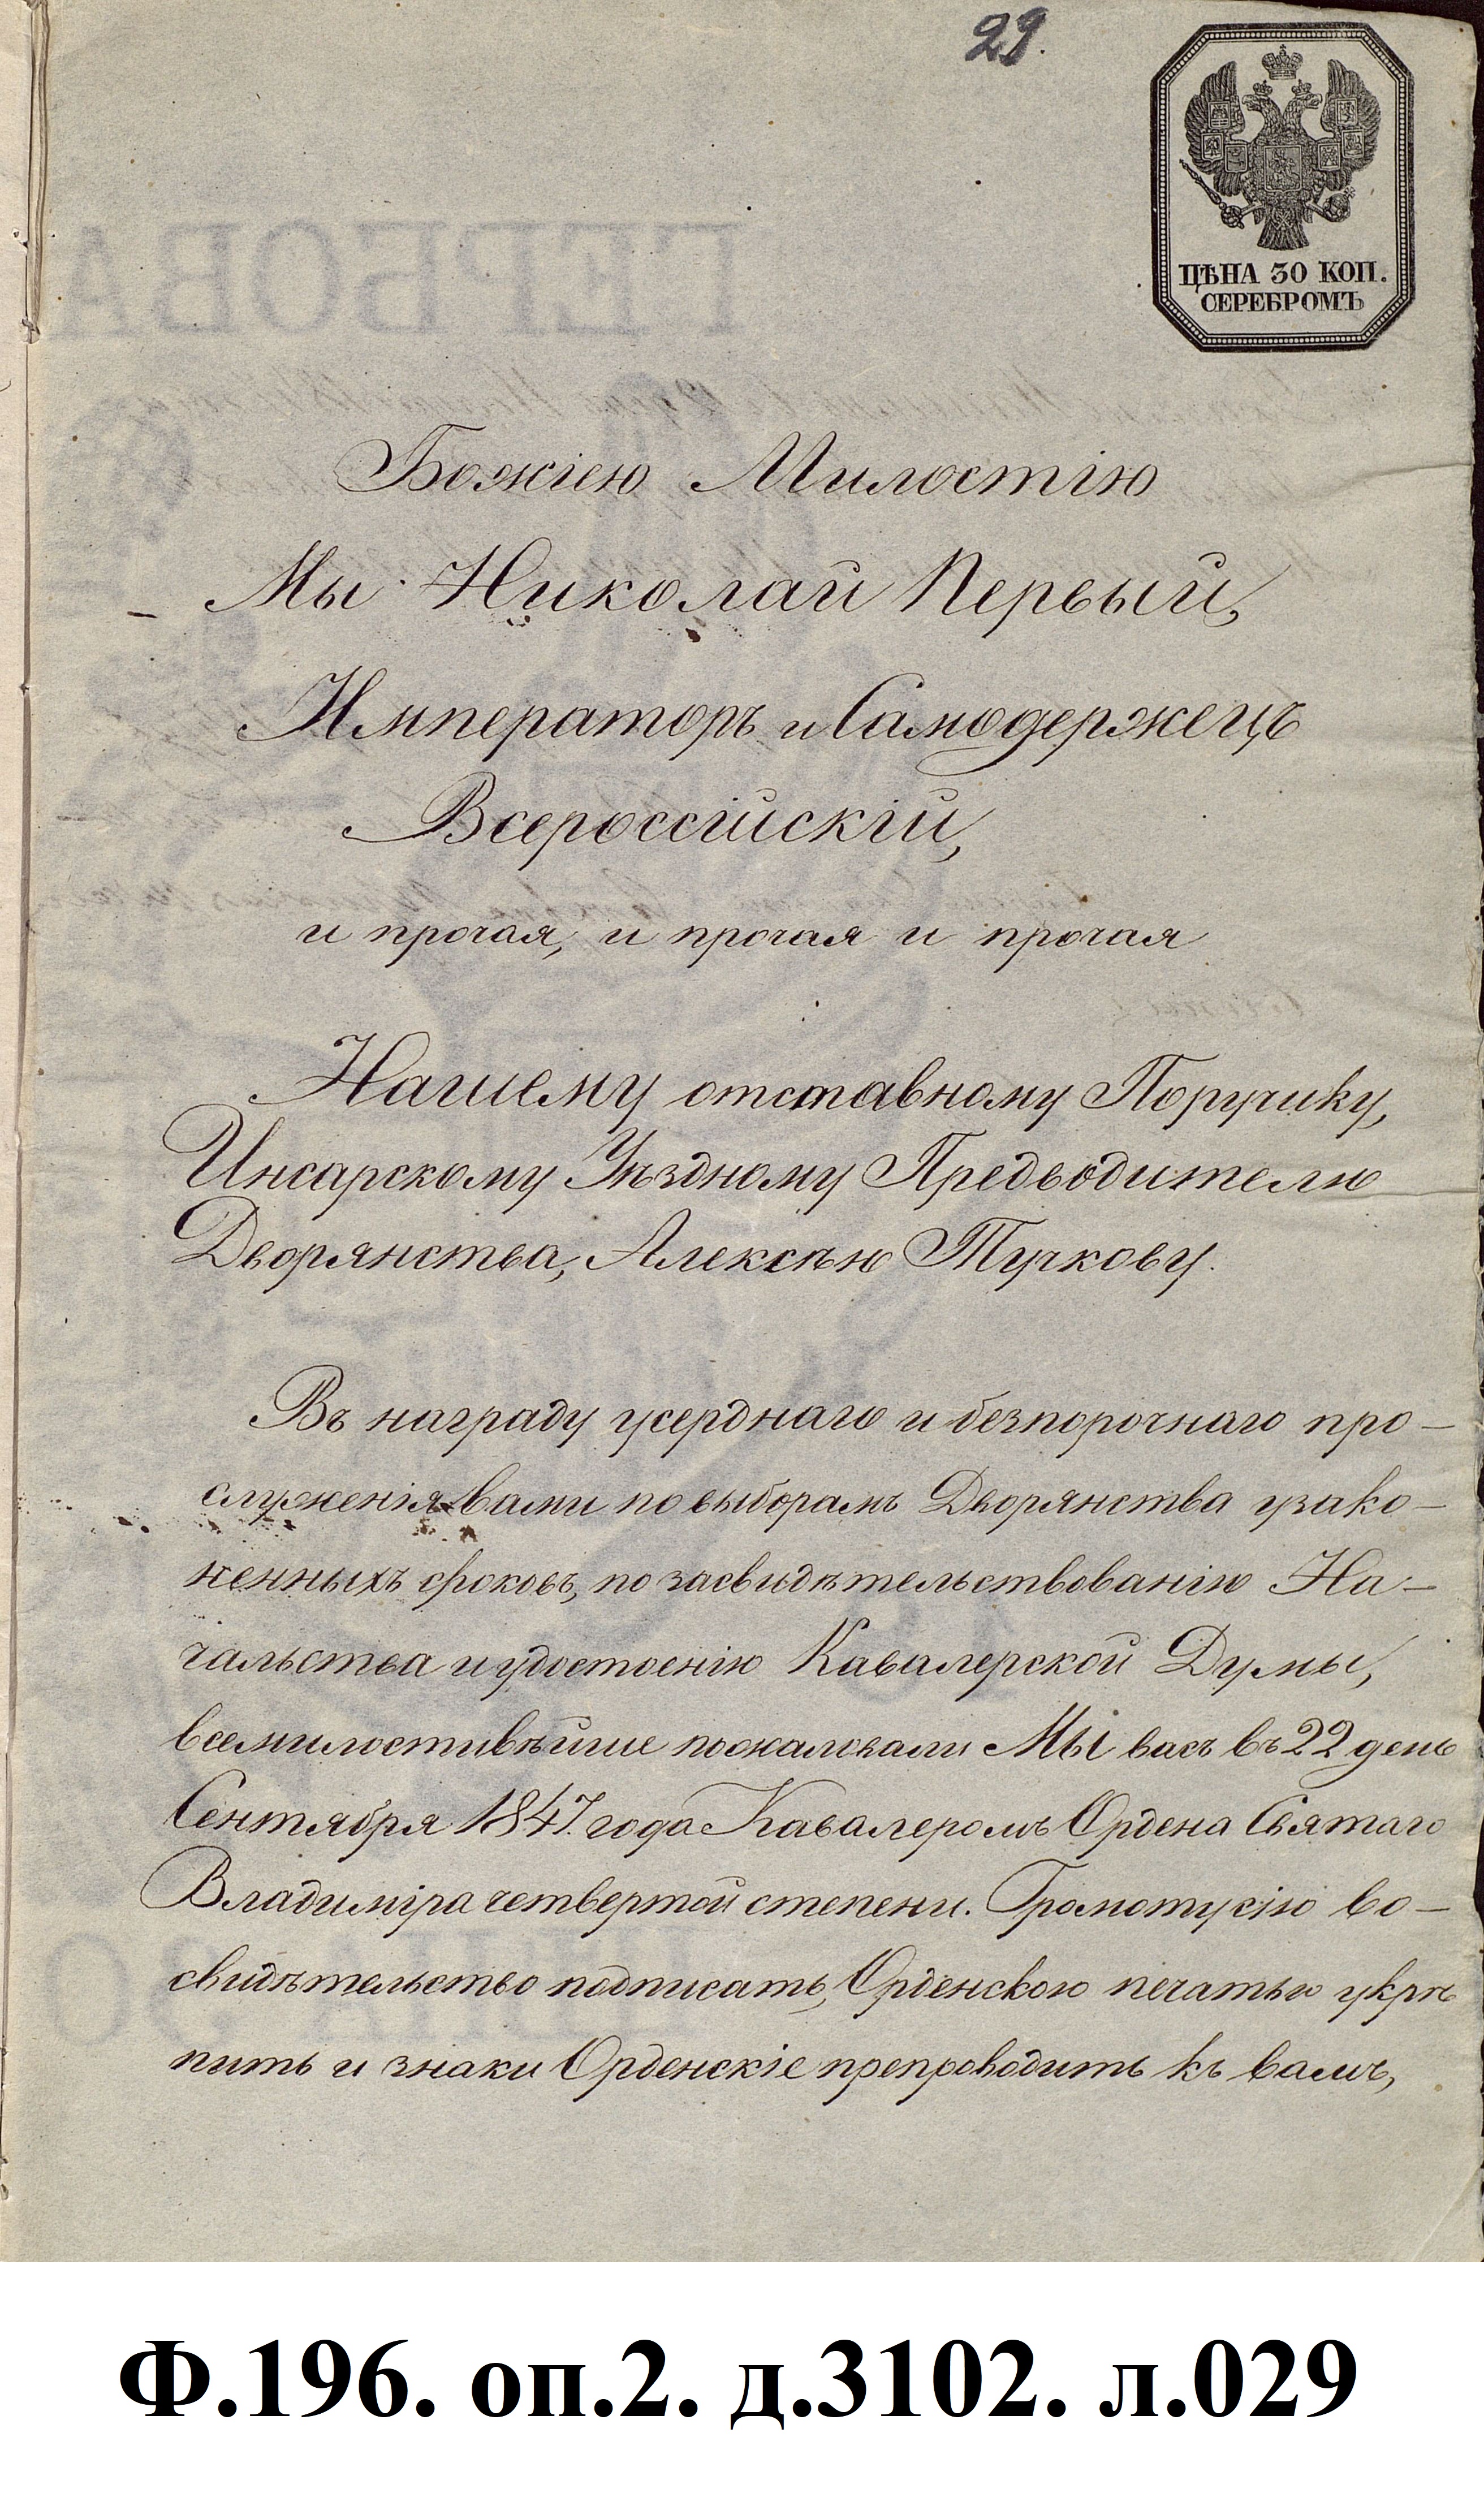 29.
ЦѢНА 30 КОП.
СЕРЕБРОМЪ
Божіею Милостію
Мы Николай Первый,
Императоръ и Самодержецъ
Всероссійскій,
и прочая, и прочая и прочая
Нашему отставному Поручику,
Инсарскому Уѣздному Предводителю
Дворянства, Алексѣю Тучкову.
Въ награду усерднаго и безпорочнаго про-
служенія вами по выборамъ Дворянства узако-
ненныхъ сроковъ, по засвидѣтельствованію На-
чальства и удостоенію Кавалерской Думы,
всемилостивѣйше пожаловали Мы васъ въ 22 день
Сентября 1847. года Кавалеромъ Ордена Святаго
Владиміра четвертой степени. Грамоту сію во-
свидѣтельство подписать, Орденскою печатью укрѣ
пить и знаки Орденскіе препроводить къ вамъ,
Ф.196. оп.2. д.3102. л.029